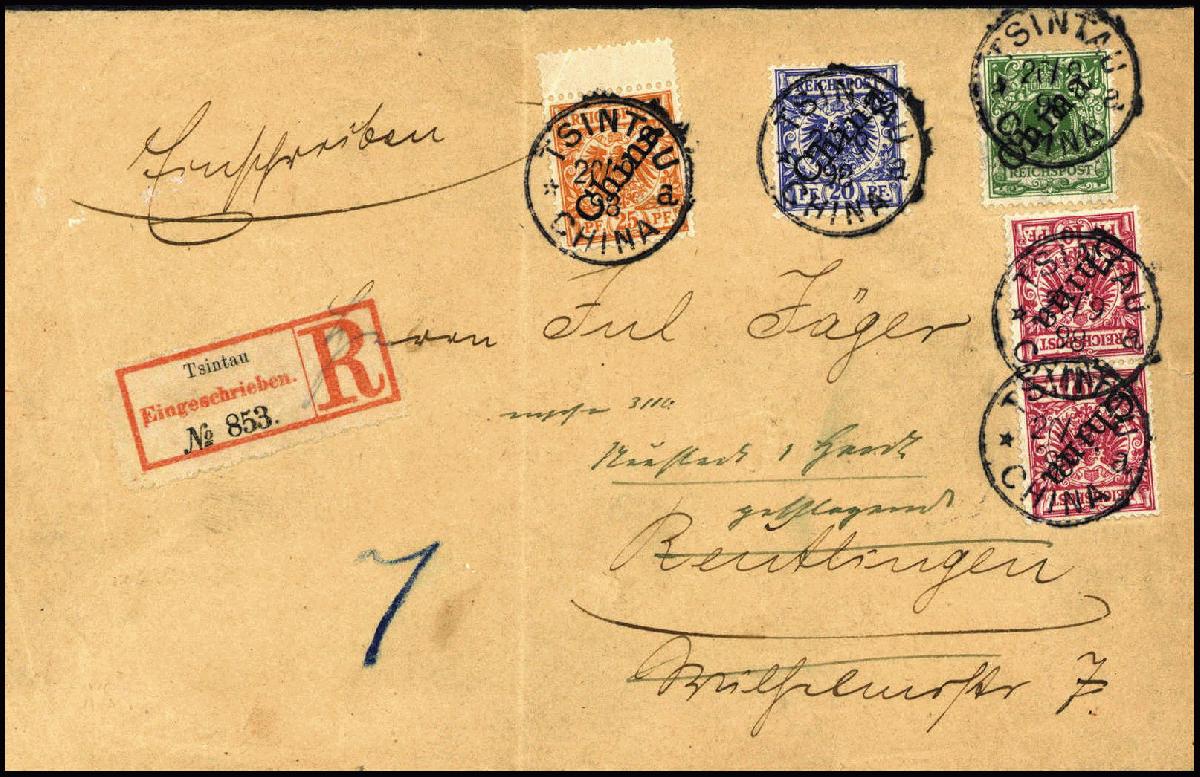 Einschreiben
TSINTAU
CHINA
a
REICHSPOST
China
25 PF
TSINTAU
CHINA
a
REICHSPOST
China
PF. 20 PF.
TSINTAU
CHINA
a
China
REICHSPOST
TSINTAU
CHINA
a
China
REICHSPOST
TSINTAU
CHINA
a
China
REICHSPOST
Tsintau
Eingeschrieben.
№ 853.
R
Herrn Jul Jäger
Neustadt
Reutlingen
Wilhelmstr 7
7